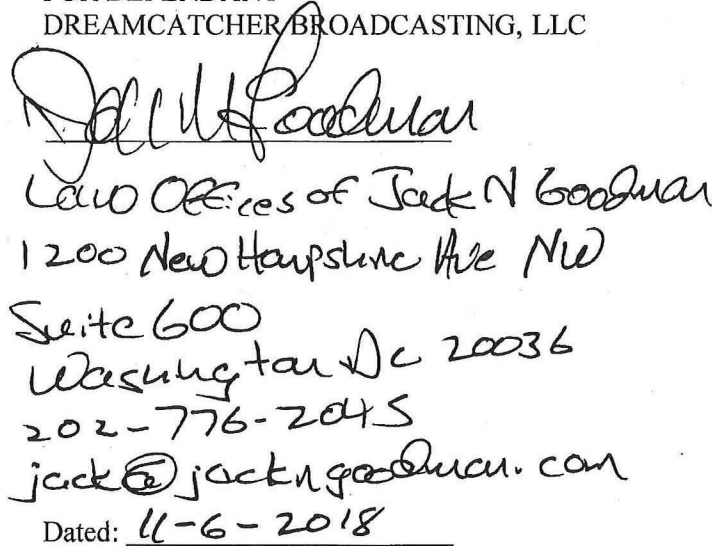 FOR DEFENDANT
DREAMCATCHER BROADCASTING, LLC
Jack N Goodman
Law Offices of Jack N Goodman
1200 New Hampshire Ave NW
Suite 600
Washington DC 20036
202-776-2045
jack@jackngoodman.com
Dated: 11-6-2018